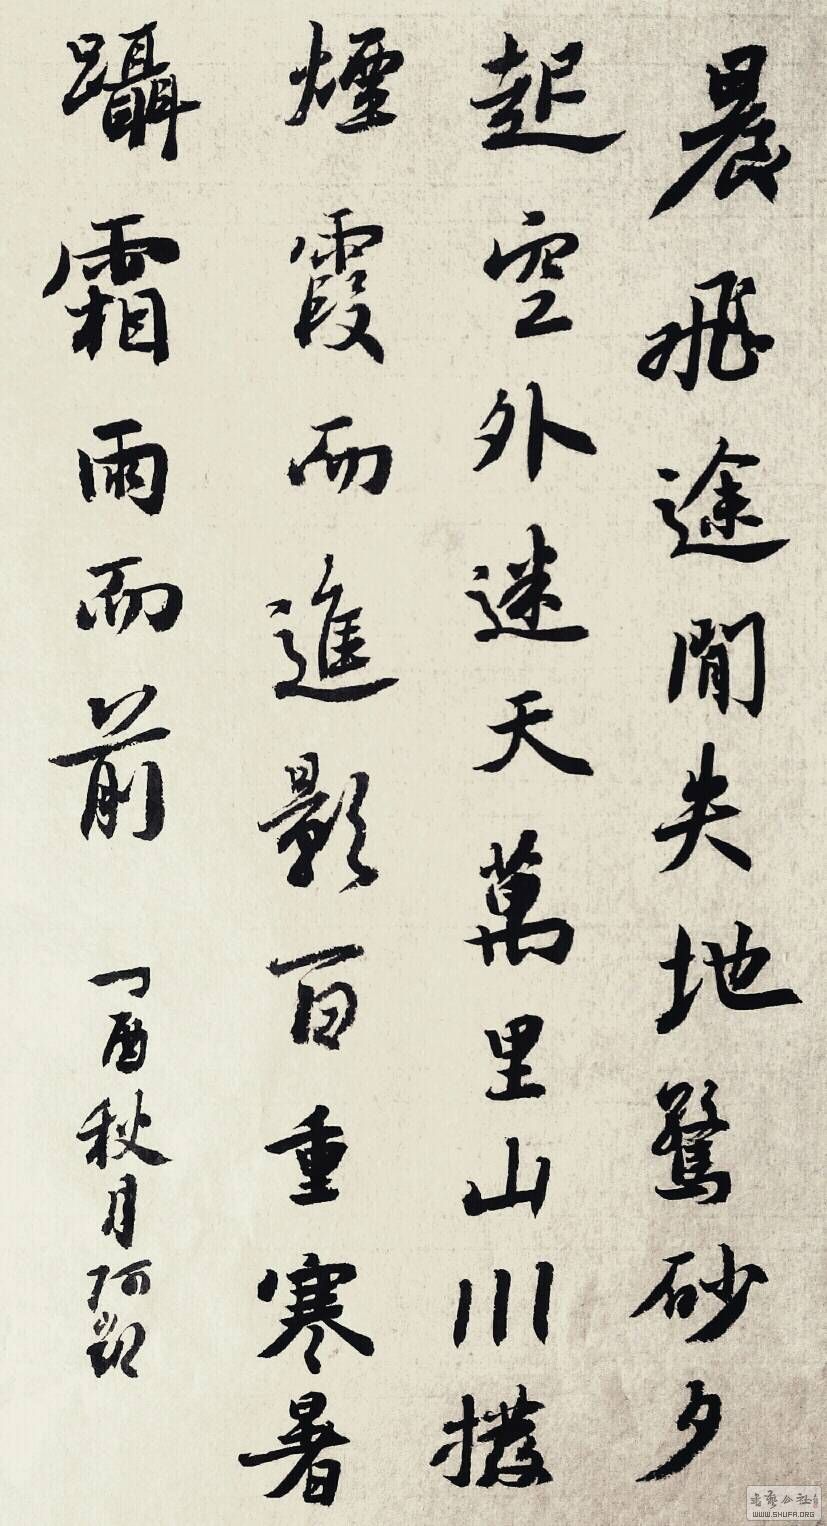 晨飛途閒失地驚砂夕
起空外迷天萬里山川撥
煙霞而進影百重寒暑
躡霜雨而前
丁酉秋月阿凱
书艺公社
WWW.SHUFA.ORG